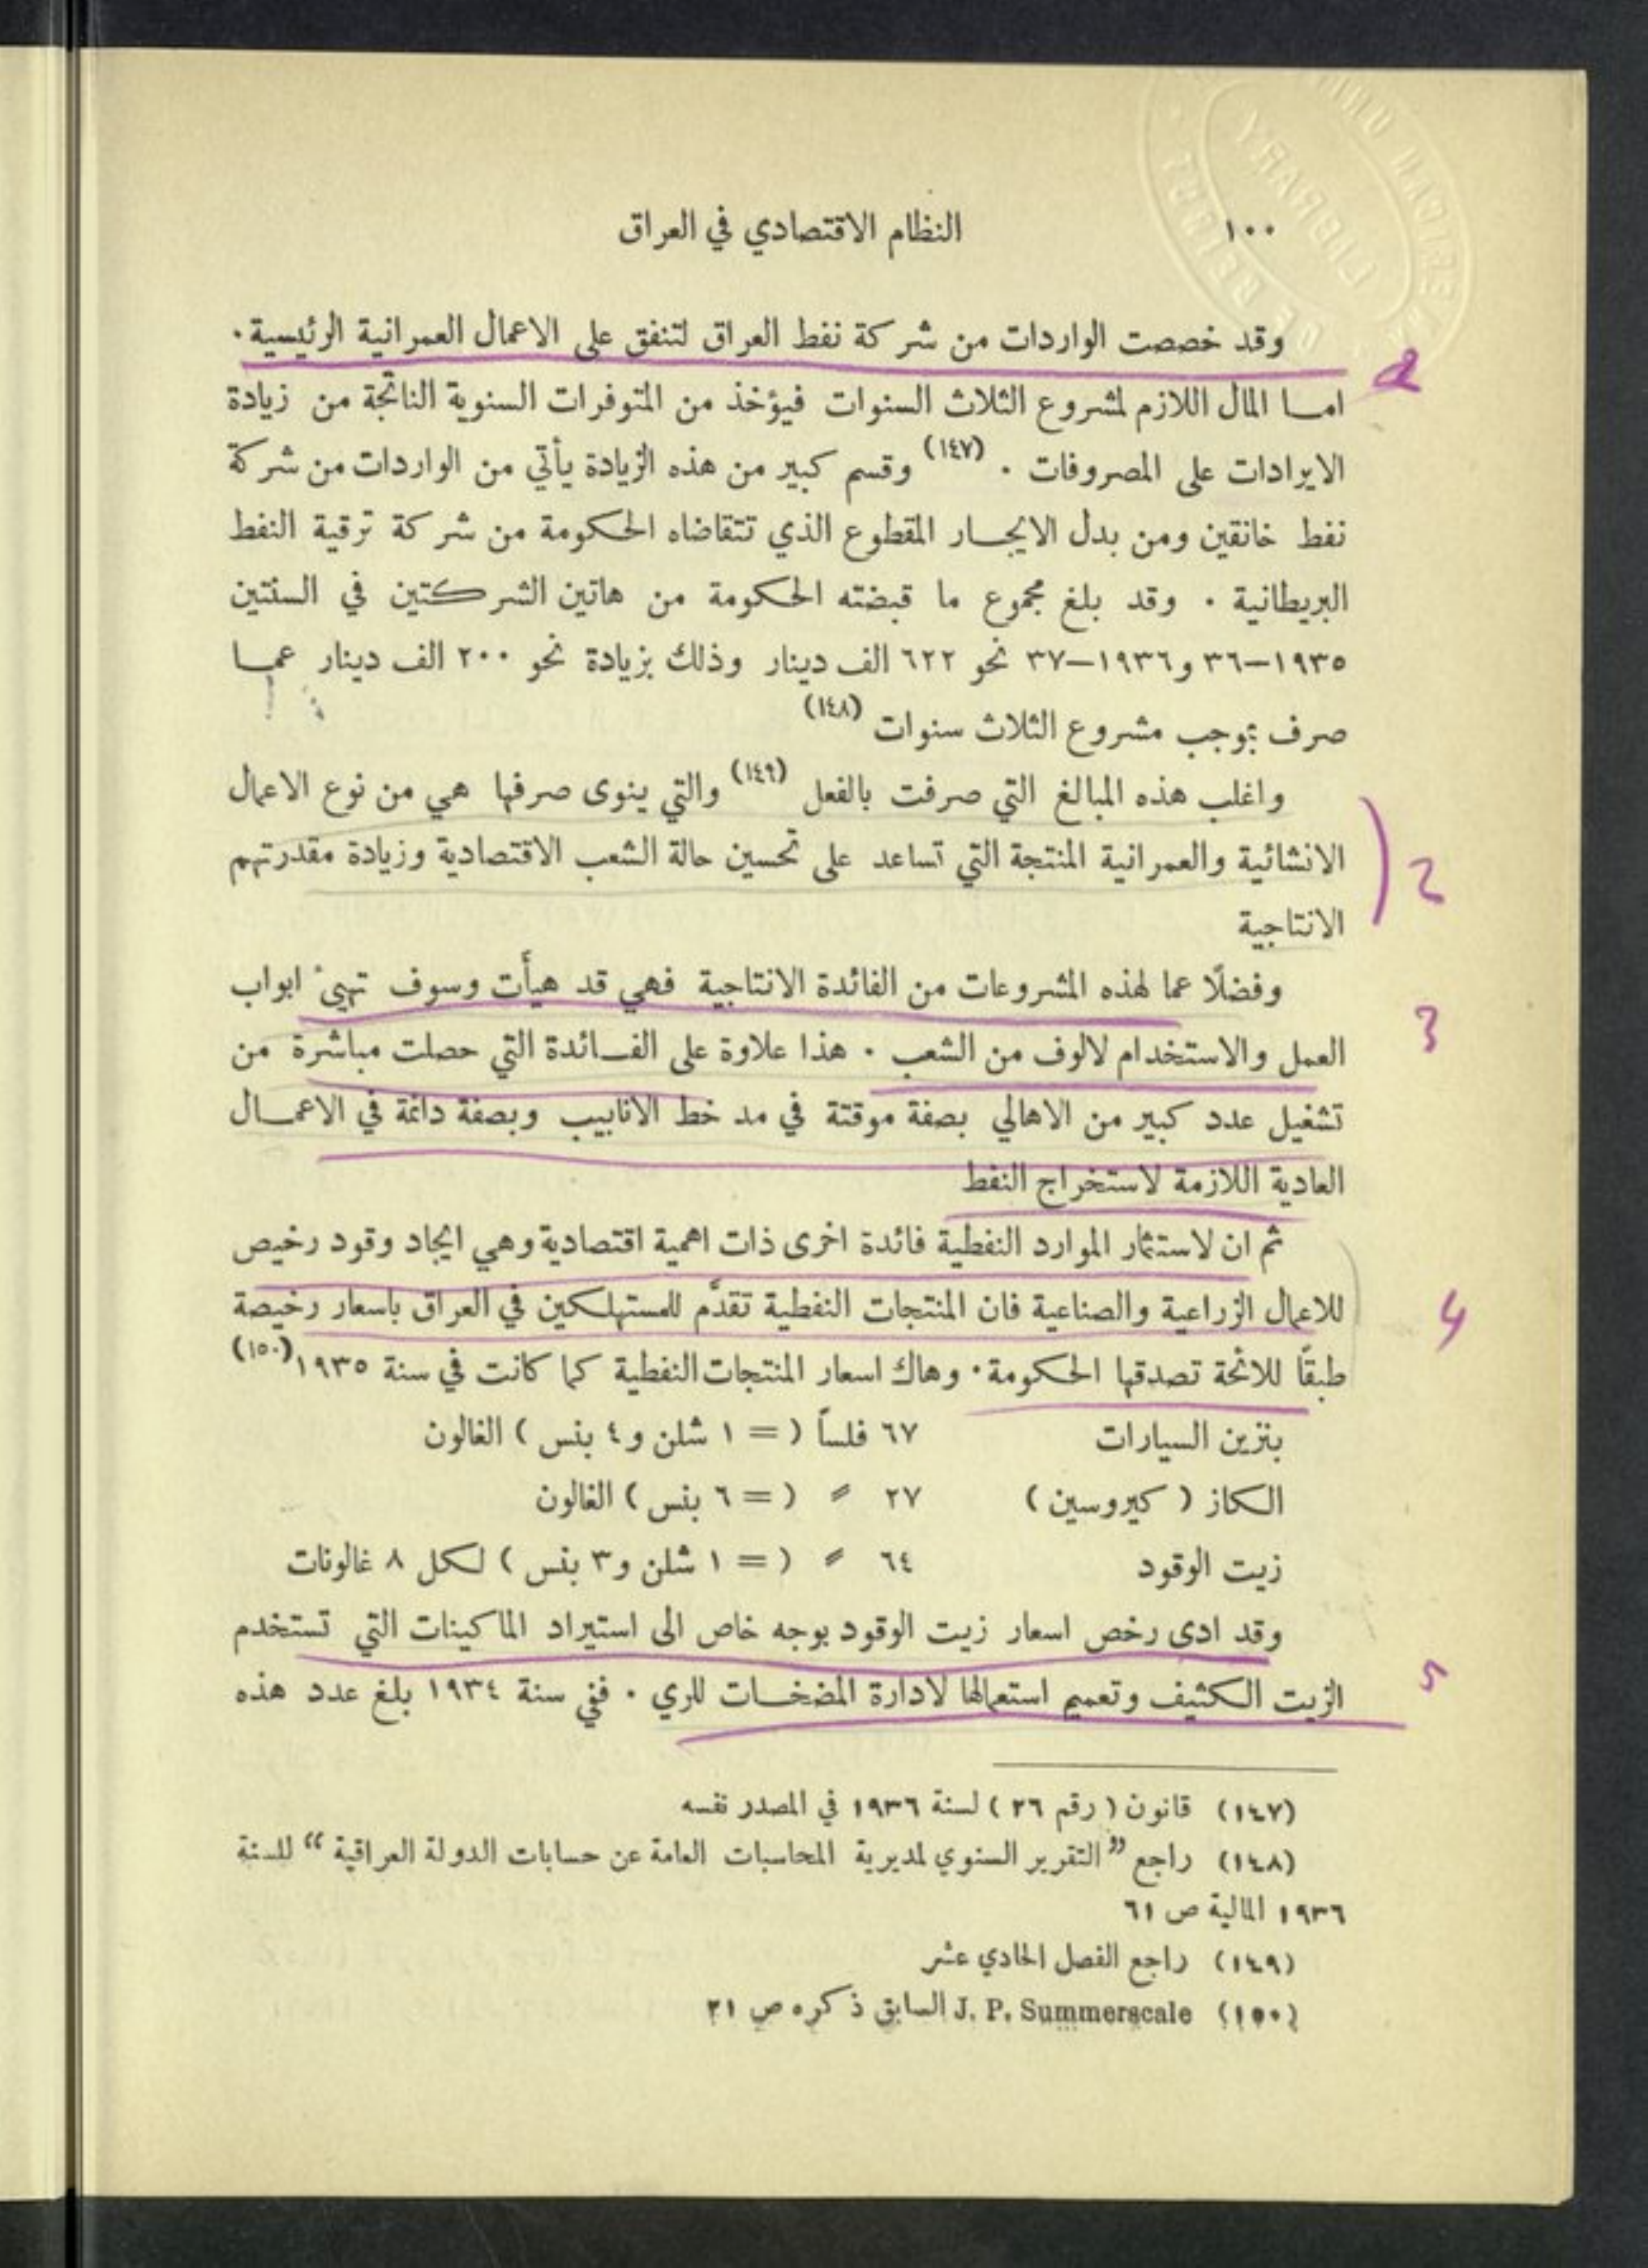 ١٠٠ النظام الاقتصادي في العراق
وقد خصصت الواردات من شركة نفط العراق لتنفق على الاعمال العمرانية الرئيسية.
امـا المال اللازم لمشروع الثلاث السنوات فيؤخذ من المتوفرات السنوية الناتجة من زيادة
الايرادات على المصروفات . (١٤٧) وقسم كبير من هذه الزيادة يأتي من الواردات من شركة
نفط خانقين ومن بدل الايجـار المقطوع الذي تتقاضاه الحكومة من شركة ترقية النفط
البريطانية . وقد بلغ مجموع ما قبضته الحكومة من هاتين الشركتين في السنتين
١٩٣٥–٣٦ و١٩٣٦–٣٧ نحو ٦٢٢ الف دينار وذلك بزيادة نحو ٢٠٠ الف دينار عمـا
صرف بموجب مشروع الثلاث سنوات (١٤٨)
واغلب هذه المبالغ التي صرفت بالفعل (١٤٩) والتي ينوى صرفها هي من نوع الاعمال
الانشائية والعمرانية المنتجة التي تساعد على تحسين حالة الشعب الاقتصادية وزيادة مقدرتهم
الانتاجية
وفضلًا عما لهذه المشروعات من الفائدة الانتاجية فهي قد هيأت وسوف تهيئ ابواب
العمل والاستخدام لالوف من الشعب . هذا علاوة على الفـائدة التي حصلت مباشرة من
تشغيل عدد كبير من الاهالي بصفة موقتة في مد خط الانابيب وبصفة دائمة في الاعمـال
العادية اللازمة لاستخراج النفط
ثم ان لاستثمار الموارد النفطية فائدة اخرى ذات اهمية اقتصادية وهي ايجاد وقود رخيص
للاعمال الزراعية والصناعية فان المنتجات النفطية تقدَّم للمستهلكين في العراق باسعار رخيصة
طبقًا للائحة تصدقها الحكومة. وهاك اسعار المنتجات النفطية كما كانت في سنة ١٩٣٥ (١٥٠)
بنزين السيارات ٦٧ فلساً ( = ١ شلن و٤ بنس ) الغالون
الكاز ( كيروسين ) ٢٧〃 ( = ٦ بنس ) الغالون
زيت الوقود ٦٤〃 ( = ١ شلن و٣ بنس ) لكل ٨ غالونات
وقد ادى رخص اسعار زيت الوقود بوجه خاص الى استيراد الماكينات التي تستخدم
الزيت الكثيف وتعميم استعمالها لادارة المضخـات للري . ففي سنة ١٩٣٤ بلغ عدد هذه
(١٤٧) قانون ( رقم ٢٦ ) لسنة ١٩٣٦ في المصدر نفسه
(١٤٨) راجع ”التقرير السنوي لمديرية المحاسبات العامة عن حسابات الدولة العراقية“ للسنة
١٩٣٦ المالية ص ٦١
(١٤٩) راجع الفصل الحادي عشر
(١٥٠) J. P. Summerscale السابق ذكره ص ٢١
2
3
4
5
LIBRARY